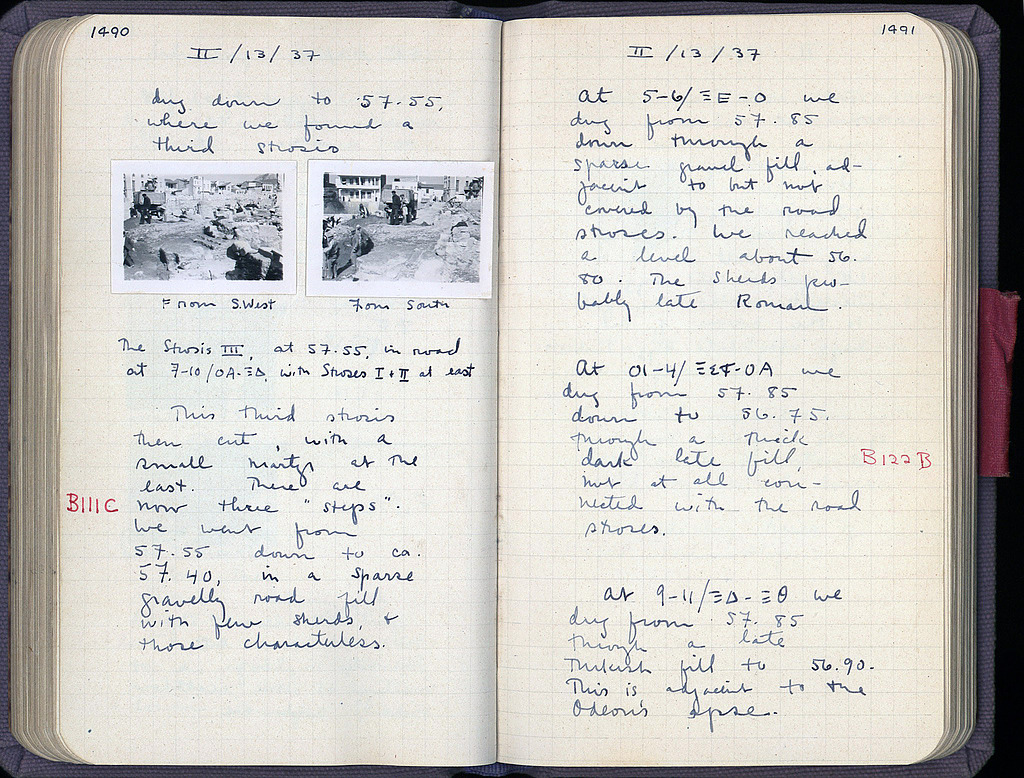 1490
II/13/37
dug down to 57.55,
where we found a
third strosis
From S.West
From South
The Strosis III, at 57.55, in road
at 7-10/OA-ΞΔ, with Stroses I + II at east
This third strosis
then cut, with a
small martyr at the
east. There are
B111C
now three "steps".
We went from
57.55 down to ca.
57.40, in a sparse
gravelly road fill
with few sherds, +
those characterless.
1491
II/13/37
At 5-6/ΞE-O we
dug from 57.85
down through a
sparse gravel fill, ad-
jacent to but not
covered by the road
stroses. We reached
a level about 56.
80. The sherds pro-
bably late Roman.
At 01-4/ΞΣΤ-OA we
dug from 57.85
down to 56.75.
through a thick
dark late fill,
B122B
not at all con-
nected with the road
stroses.
At 9-11/ΞΔ-ΞΘ we
dug from 57.85
through a late
Turkish fill to 56.90.
This is adjacent to the
Odeon's apse.